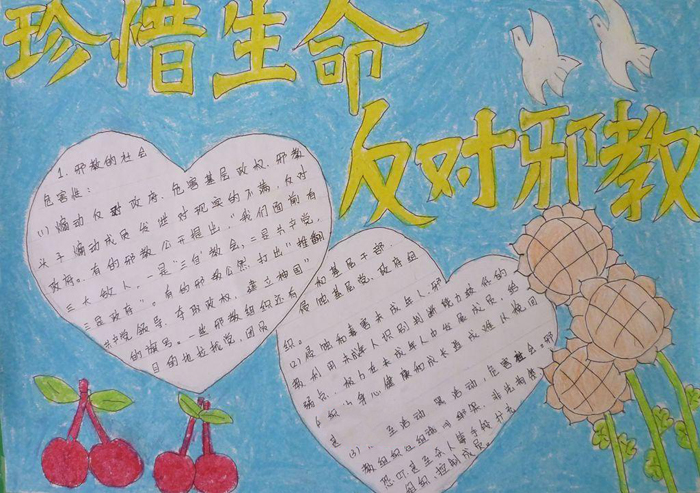 珍惜生命
反对邪教
1、邪教的社会
危害性：
(1) 煽动反对政府、危害基层政权、邪教
头子煽动成员发泄对现实的不满、反对
政府。有的邪教公开提出：“我们面前有
三大敌人，一是“三自”教会，二是共产党，
三是政府”。有的邪教公然打出“推翻
共产党领导，夺取政权，建立神国”
的旗号。一些邪教组织还有
目的地拉拢党、团员
和基层干部，
腐蚀基层党、政府组
织。
(2) 腐蚀和毒害未成年人、邪
教利用未成年人识别判断能力较低的
弱点，极力在未成年人中发展成员，给
的身心健康和成长造成难以挽回
(3)、
活动，危害社会。邪
教组织
恐吓甚至杀人等手段
组织、控制成员